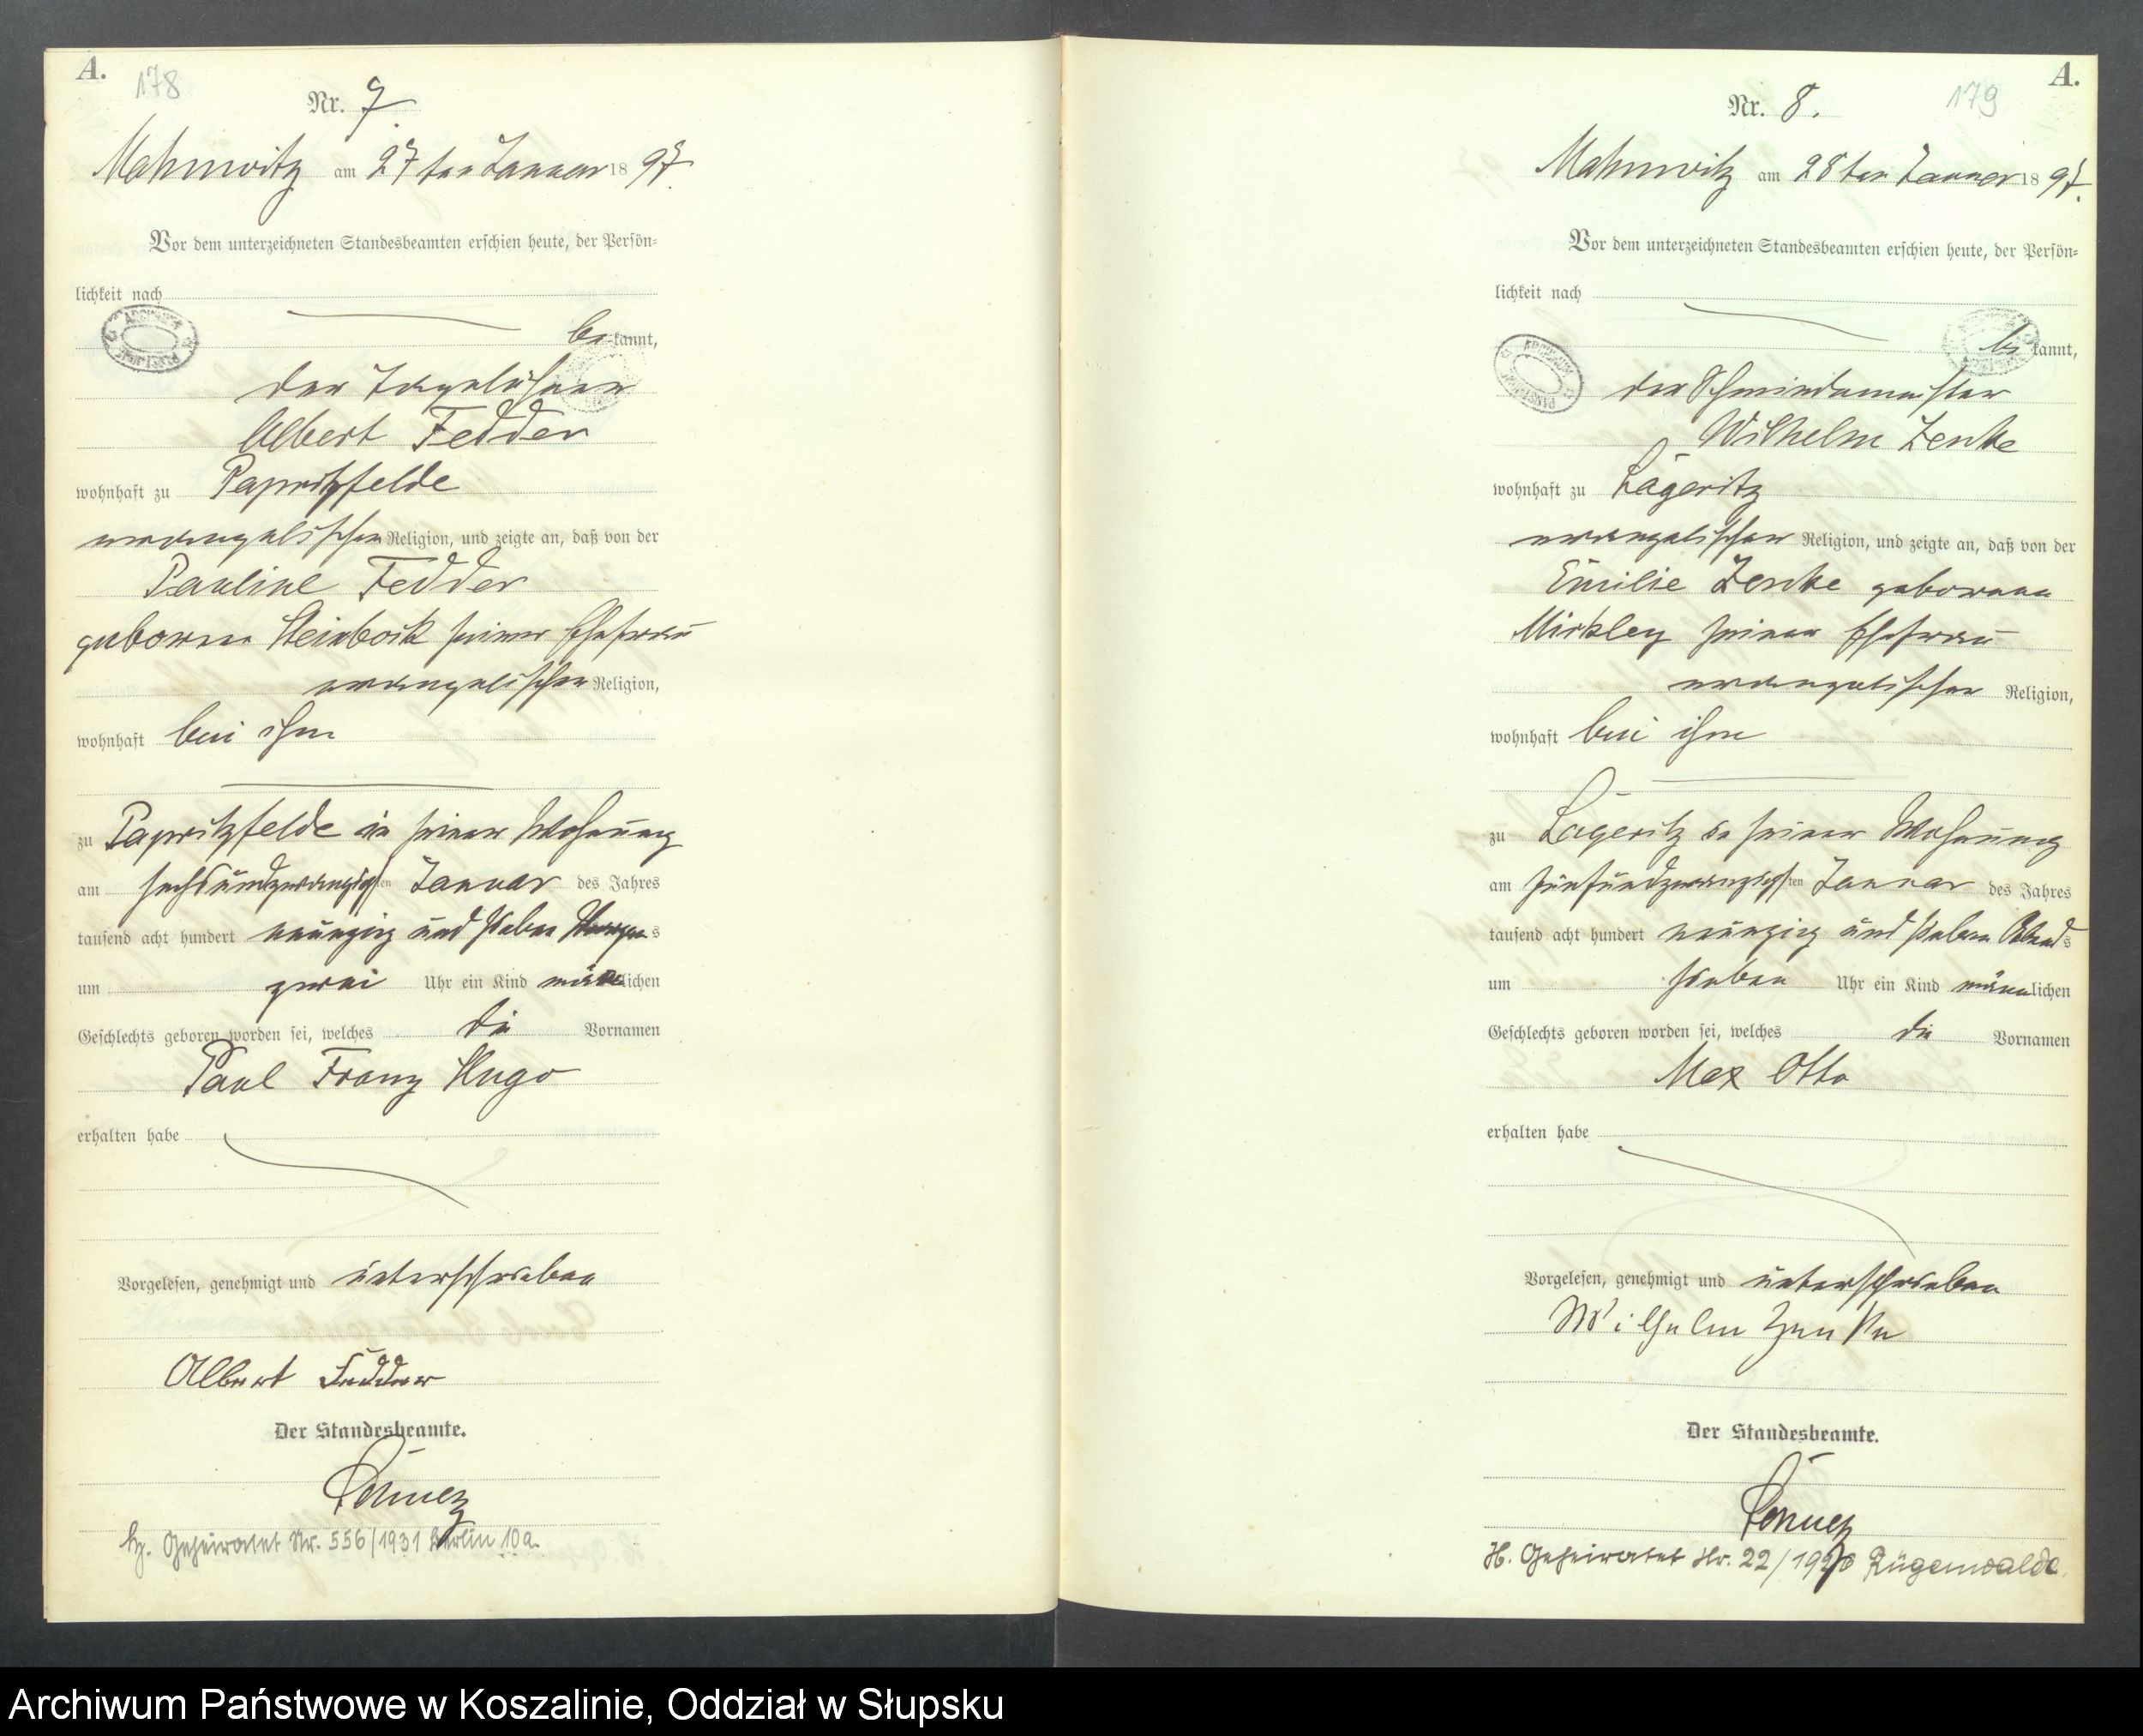 A.
178
Nr. 7.
Mahnwitz am 27ten Januar 1897.
Vor dem unterzeichneten Standesbeamten erschien heute, der Persön-
lichkeit nach
bekannt,
der Tagelöhner
Albert Fedder
wohnhaft zu Papritzfelde
evangelischer Religion, und zeigte an, daß von der
Pauline Fedder
geborene Steinbock seiner Ehefrau
evangelischer Religion,
wohnhaft bei ihm
zu Papritzfelde in seiner Wohnung
am sechsundzwanzigsten Januar des Jahres
tausend acht hundert neunzig und sieben Morgens
um zwei Uhr ein Kind männlichen
Geschlechts geboren worden sei, welches die Vornamen
Paul Franz Hugo
erhalten habe
Vorgelesen, genehmigt und unterschrieben
Albert Fedder
Der Standesbeamte.
Geheiratet Nr. 556/1931 Berlin 10a.
A.
179
Nr. 8.
Mahnwitz am 28ten Januar 1897.
Vor dem unterzeichneten Standesbeamten erschien heute, der Persön-
lichkeit nach
bekannt,
der Schmiedemeister
Wilhelm Zenke
wohnhaft zu Lägeritz
evangelischer Religion, und zeigte an, daß von der
Emilie Zenke geborene
Mickley seiner Ehefrau
evangelischer Religion,
wohnhaft bei ihm
zu Lägeritz in seiner Wohnung
am fünfundzwanzigsten Januar des Jahres
tausend acht hundert neunzig und sieben Abends
um sieben Uhr ein Kind männlichen
Geschlechts geboren worden sei, welches die Vornamen
Max Otto
erhalten habe
Vorgelesen, genehmigt und unterschrieben
Wilhelm Zenke
Der Standesbeamte.
H. Geheiratet Nr. 22/ Rügenwalde.
Archiwum Państwowe w Koszalinie, Oddział w Słupsku